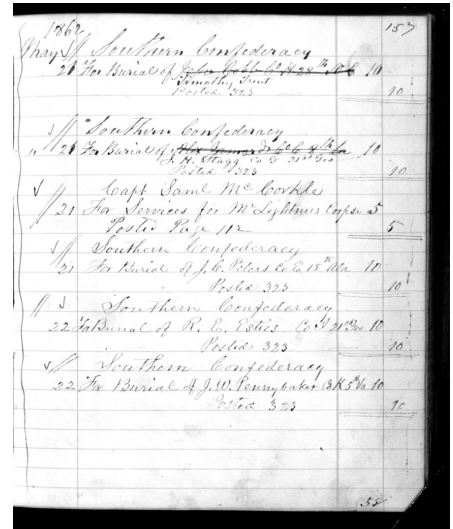 1862 157
May // Southern Confederacy
21 For Burial of John Cobb Co H 28th N C 10
Timothy Trent
Posted 323 10
√ // Southern Confederacy
" 21 For Burial of Alex Co C 8th La 10
J. H. Stagg Co G 21st Geo
Posted 323 10
√ // Capt Saml Mc Corkle
21 For Services for Mr Lightner Corpse 5
Posted Page 112 5
√ // Southern Confederacy
21 For Burial of J. C. Peters Co E 15th Ala 10
Posted 323 10
// √ Southern Confederacy
22 For Burial of R. E. Esties Co 21st Geo 10
Posted 323 10
√ // Southern Confederacy
22 For Burial of J. W. Pennybaker K 5th Va 10
Posted 323 10
58